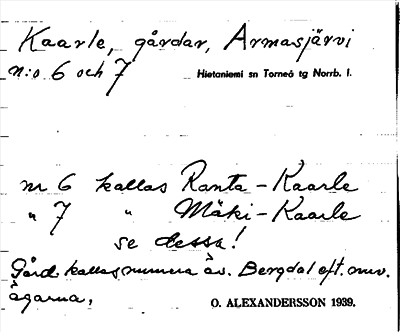 Kaarle, gårdar, Armasjärvi
n:o 6 och 7 Hietaniemi sn Torneå tg Norrb. l.
nr 6 kallas Ranta-Kaarle
" 7 " Mäki-Kaarle
se dessa!
Gård kallas numera äv. Bergdal eft. nuv.
ägarna,
O. ALEXANDERSSON 1939.